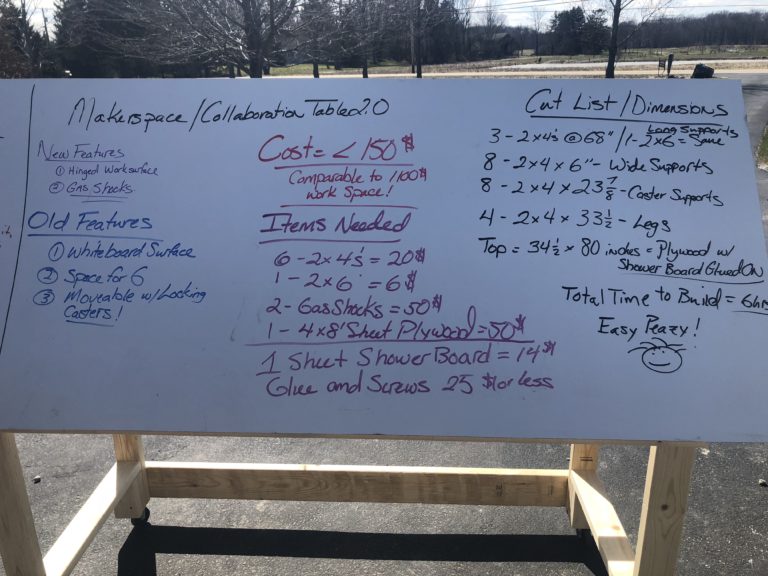 Makerspace/Collaboration Table 2.0
New Features
① Hinged Worksurface
② Gas Shocks
Old Features
① Whiteboard Surface
② Space for 6
③ Moveable w/Locking
Casters!
Cost = < 150$
Comparable to 1100$
Work Space!
Items Needed
6 - 2x4's = 20$
1 - 2x6 = 6$
2 - Gas Shocks = 50$
1 - 4x8' Sheet Plywood = 50$
1 Sheet Shower Board = 14$
Glue and Screws 25 $ or less
Cut List/Dimensions
3 - 2x4's @ 68" / 1 - 2x6 = Same
Long Supports
8 - 2x4 x 6" - Wide Supports
8 - 2x4 x 23 7/8 - Caster Supports
4 - 2x4 x 33 1/2 - Legs
Top = 34 1/2 x 80 inches = Plywood w/
Shower Board Glued On
Total Time to Build = 6hrs
Easy Peazy!